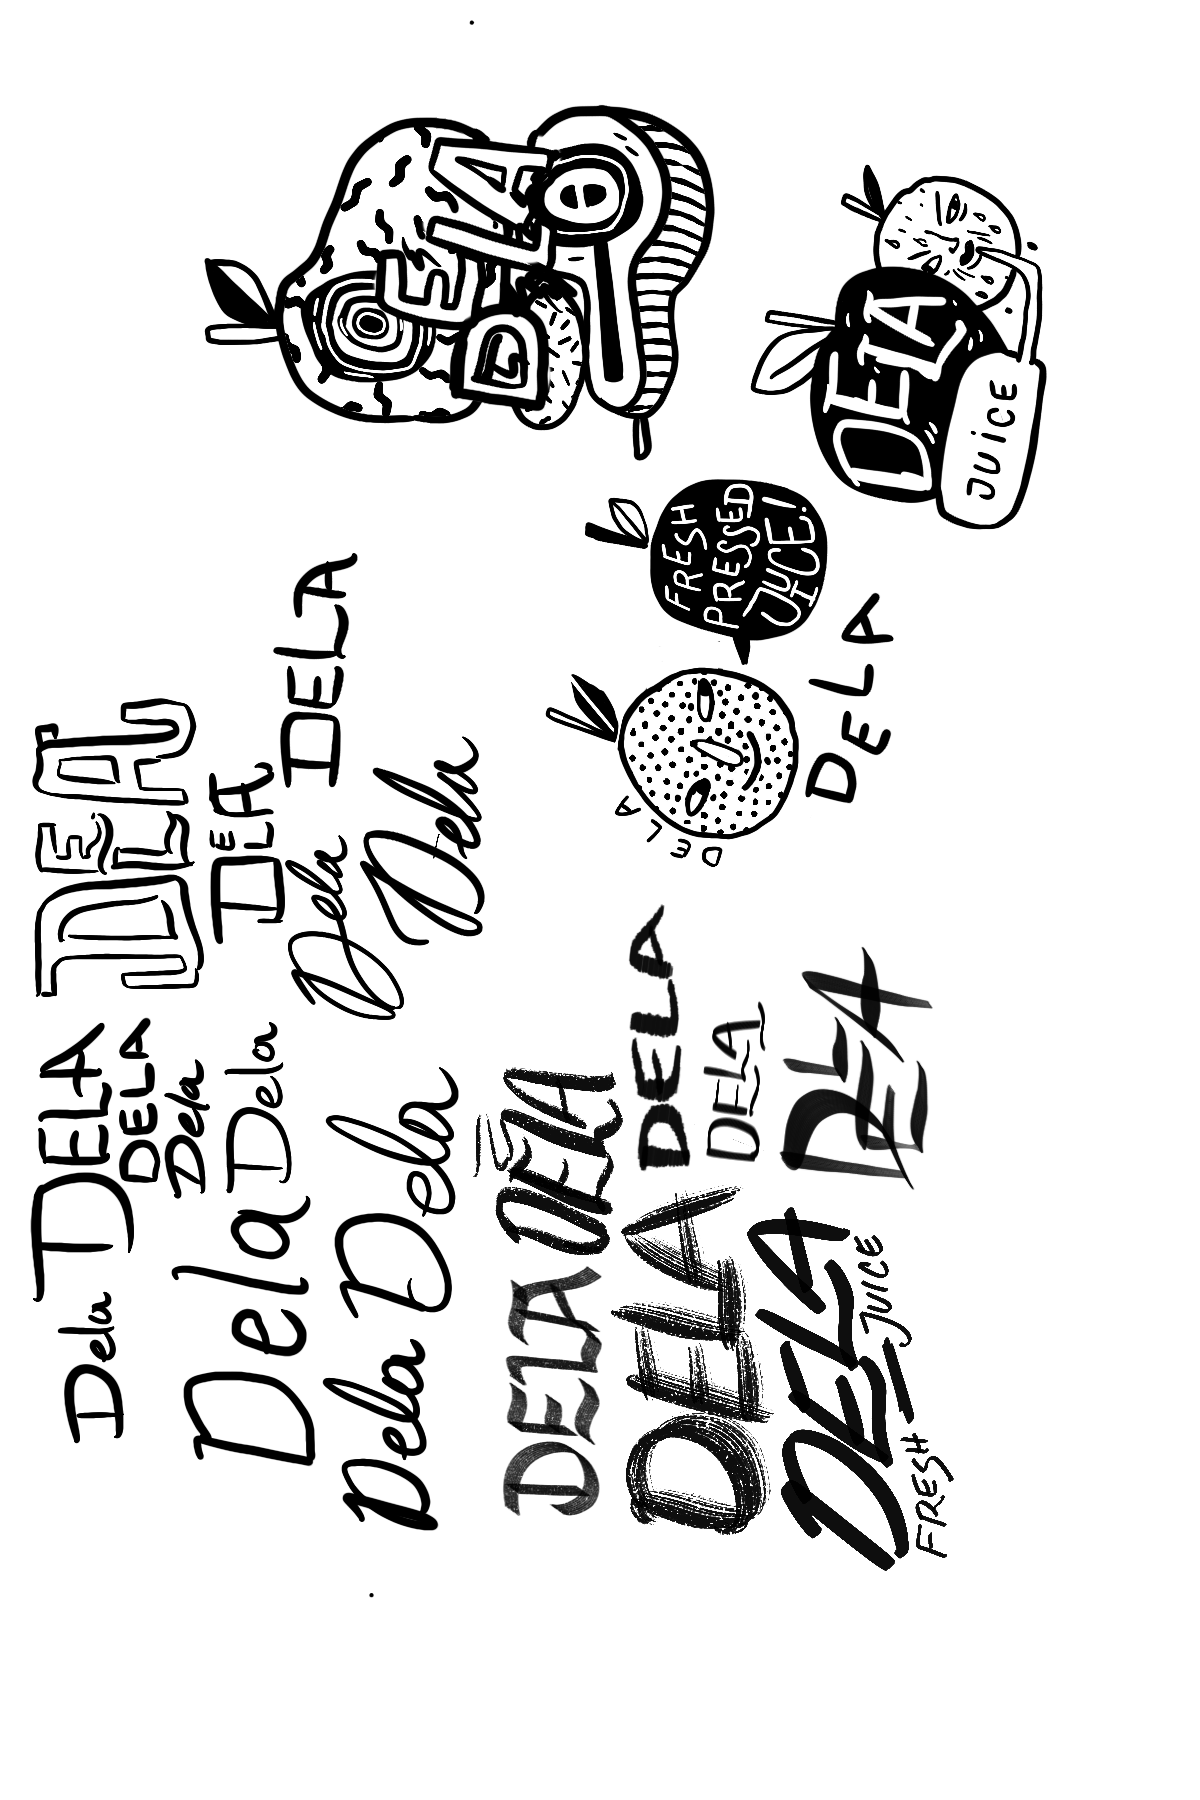 Dela
DELA
DELA
DELA
Dela
DELA
DELA
Dela
Dela
Dela
Dela
Dela
Dela
DELA
DELA
DELA
DELA
DELA
DELA
FRESH – JUICE
DELA
DELA
FRESH
PRESSED
JUICE!
DELA
DELA
DELA
JUiCE